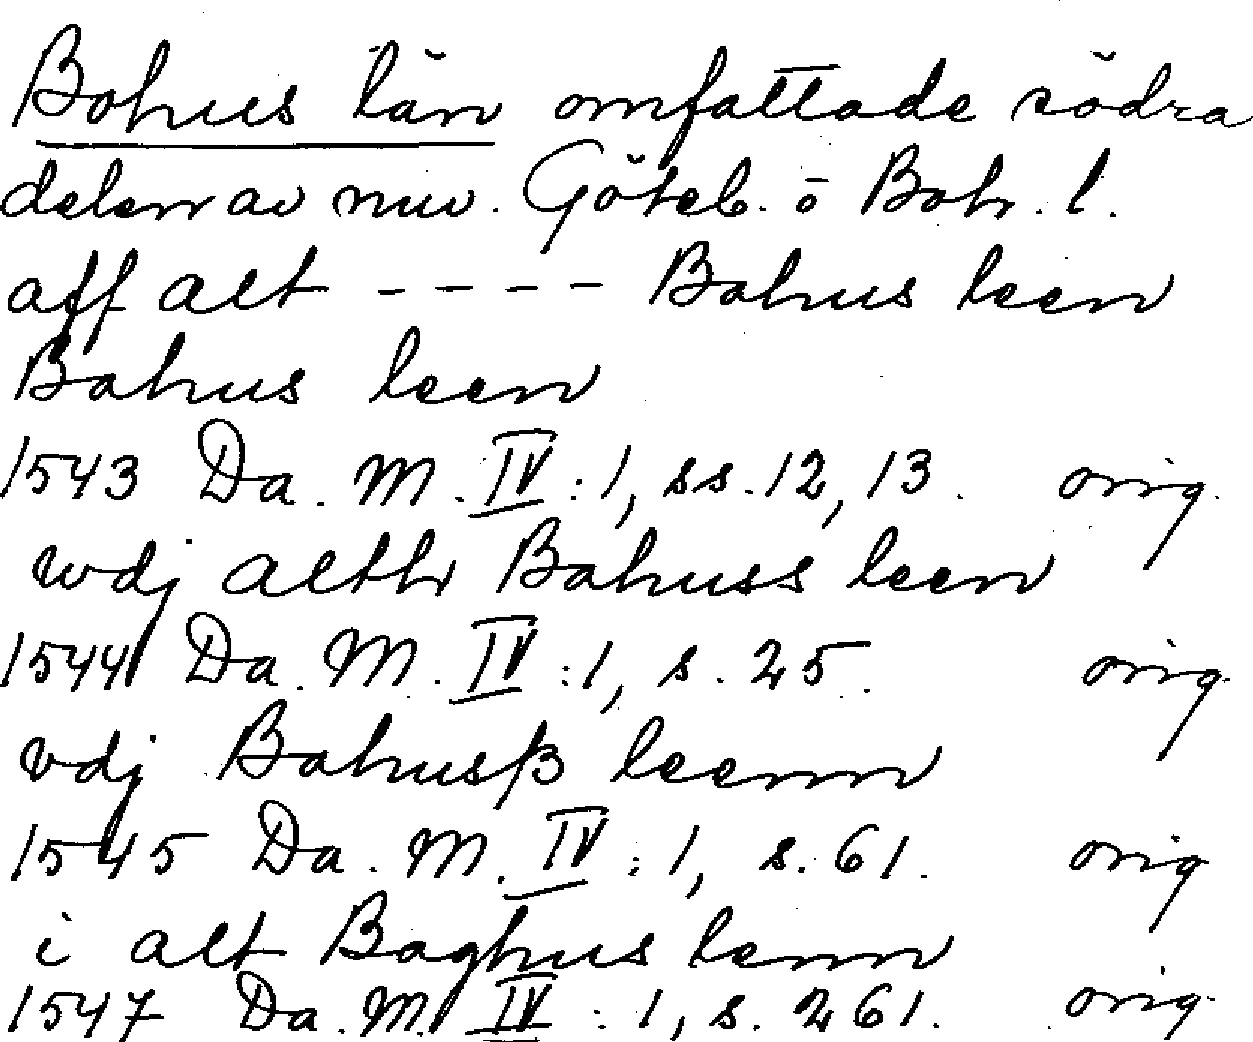 Bohus län omfattade södra
delen av nuv. Göteb. o Boh. l.
aff alt - - - - Bahus leen
Bahus leen
1543 Da. M. IV : 1, ss. 12, 13. orig.
wdj altth Bahuss leen
1544 Da. M. IV : 1, s. 25. orig.
vdj Bahusß leenn
1545 Da. M. IV : 1, s. 61. orig
i alt Baghus lenn
1547 Da. M. IV : 1, s. 261. orig.